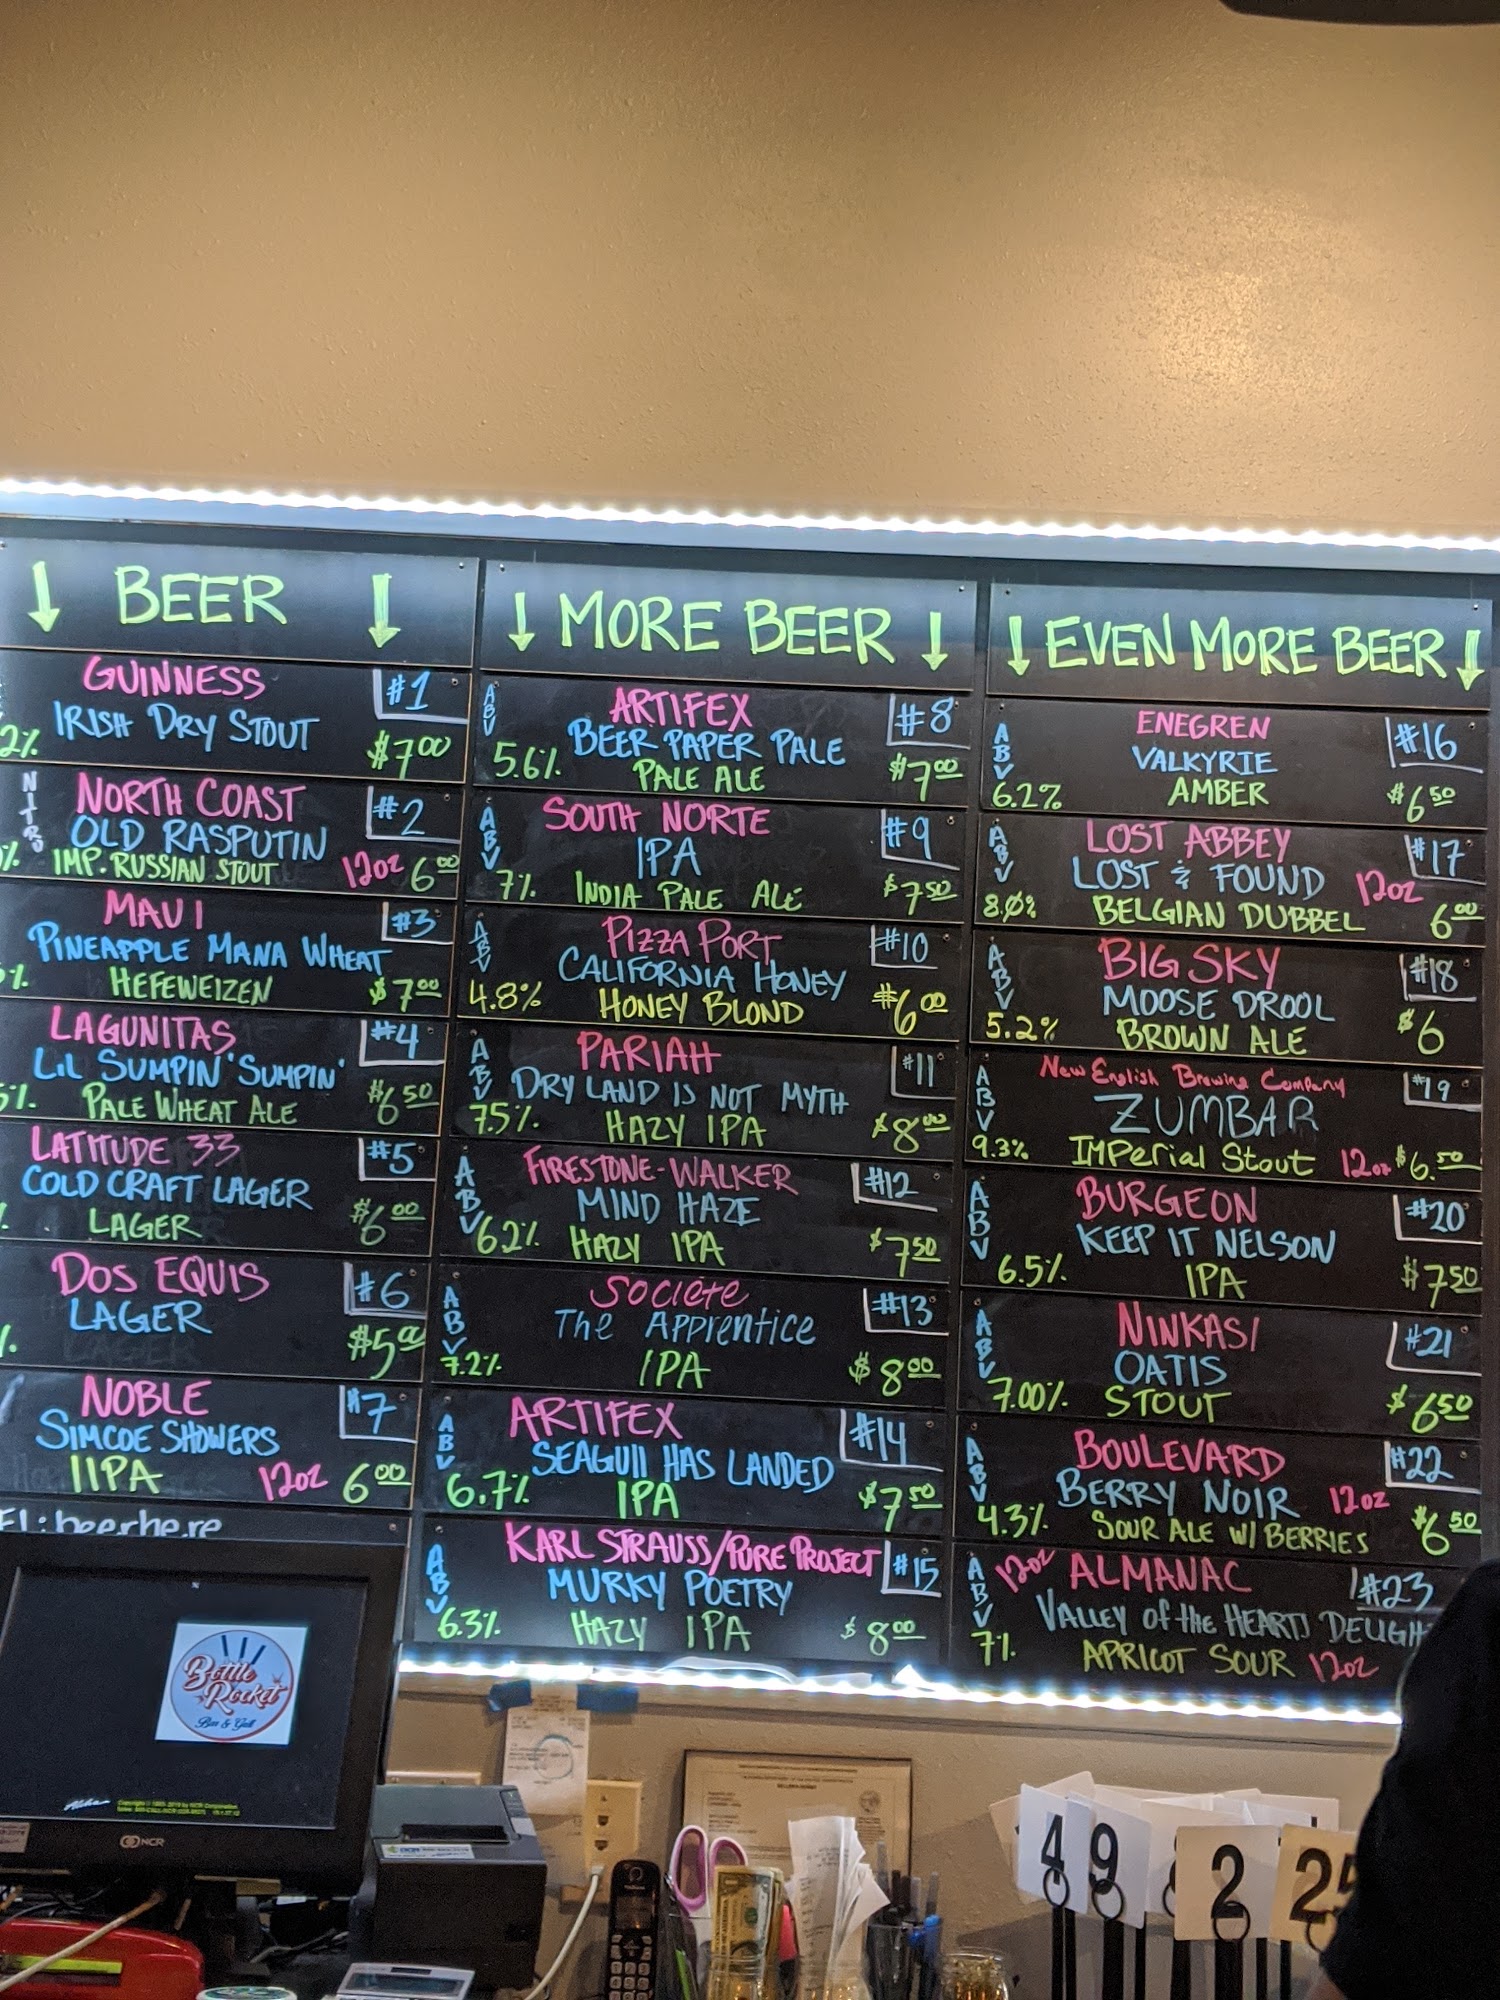 BEER
GUINNESS #1
IRISH DRY STOUT
2% $7.00
NITRO NORTH COAST #2
OLD RASPUTIN
% IMP. RUSSIAN STOUT 12oz 6.00
MAUI #3
PINEAPPLE MANA WHEAT
% HEFEWEIZEN $7.00
LAGUNITAS #4
LIL SUMPIN' SUMPIN'
5%. PALE WHEAT ALE $6.50
LATITUDE 33 #5
COLD CRAFT LAGER
LAGER $6.00
DOS EQUIS #6
LAGER
$5.00
NOBLE #7
SIMCOE SHOWERS
IIPA 12oz 6.00
: beerhere
MORE BEER
ABV ARTIFEX #8
BEER PAPER PALE
5.6%. PALE ALE $7.00
ABV SOUTH NORTE #9
IPA
7%. INDIA PALE ALE $7.50
ABV PIZZA PORT #10
CALIFORNIA HONEY
4.8% HONEY BLOND $6.00
ABV PARIAH #11
DRY LAND IS NOT MYTH
7.5%. HAZY IPA $8.00
ABV FIRESTONE-WALKER #12
MIND HAZE
6.2%. HAZY IPA $7.50
ABV SOCIETE #13
The Apprentice
7.2%. IPA $8.00
ABV ARTIFEX #14
SEAGUll HAS LANDED
6.7% IPA $7.50
ABV KARL STRAUSS/PURE PROJECT #15
MURKY POETRY
6.3%. HAZY IPA $8.00
EVEN MORE BEER
ABV ENEGREN #16
VALKYRIE
6.2% AMBER $6.50
ABV LOST ABBEY #17
LOST & FOUND 12oz
8.0% BELGIAN DUBBEL 6.00
ABV BIG SKY #18
MOOSE DROOL
5.2% BROWN ALE $6
ABV New English Brewing Company #19
ZUMBAR
9.3% IMPerial Stout 12oz $6.50
ABV BURGEON #20
KEEP IT NELSON
6.5%. IPA $7.50
ABV NINKASI #21
OATIS
7.00% STOUT $6.50
ABV BOULEVARD #22
BERRY NOIR 12oz
4.3%. SOUR ALE W/ BERRIES $6.50
ABV 12oz ALMANAC #23
VALLEY of the HEARTS DELIGH
7%. APRICOT SOUR 12oz
Bottle
Rocket
Bar & Grill
NCR
4 9 2 25